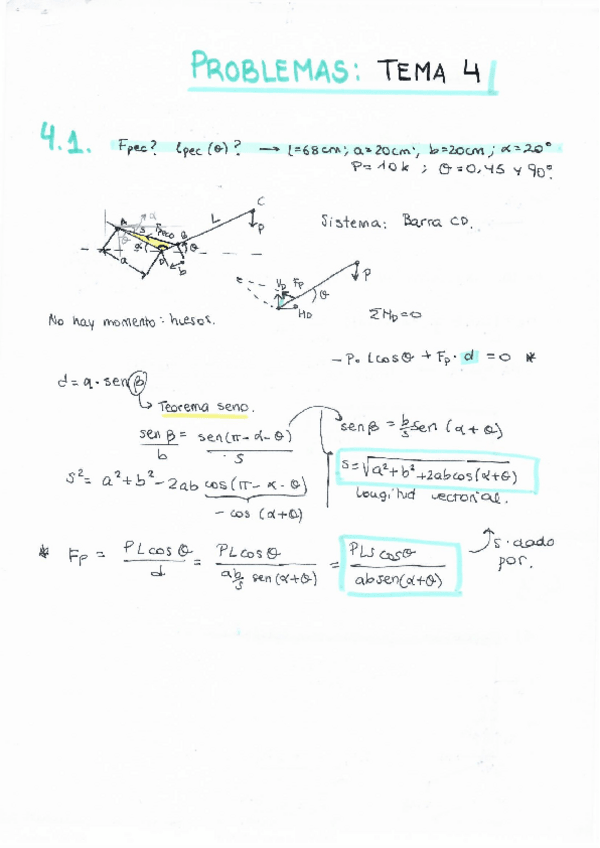 PROBLEMAS: TEMA 4
4.1. Fpec? lpec (θ)? → l=68cm; a=20cm; b=20cm; α=20°
P=10k ; θ=0,45 y 90°.
Sistema: Barra CD.
A
C
L
P
B
θ
α
D
a
b
V_D F_P
P
θ
H_D
ΣM_D=0
No hay momento: huesos.
-P·Lcosθ + F_P·d = 0 *
d = a·senβ
Teorema seno.
senβ/b = sen(π-α-θ)/s
senβ = b/s sen(α+θ)
s²= a²+b²-2ab cos(π-α-θ)
-cos(α+θ)
s=√a²+b²+2abcos(α+θ)
longitud vectorial.
* F_P = PLcosθ/d = PLcosθ/(ab/s sen(α+θ)) = PLs cosθ/absen(α+θ)
s·dado
por.